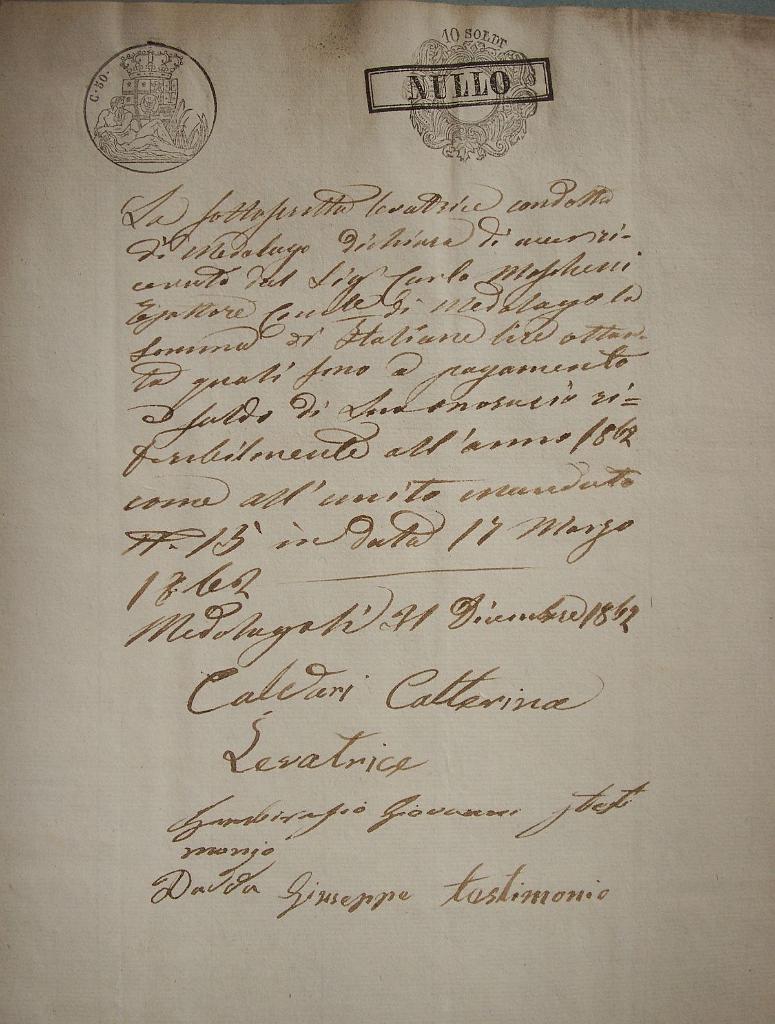 C. 50.
10 SOLDI
NULLO
La sottoscritta levatrice condotta
di Medolago dichiara di aver ri-
cevuto dal Sig. Carlo Moscheni
Esattore Comle di Medolago la
somma di Italiane lire ottan-
ta quali sono a pagamento
e saldo di suo onorario ri=
feribilmente all'anno 1862
come all'unito mandato
N. 15 in data 17 Marzo
1862
Medolago li 31 Dicembre 1862
Caldari Catterina
Levatrice
Giovanni testi
monio
Dadda Giuseppe testimonio